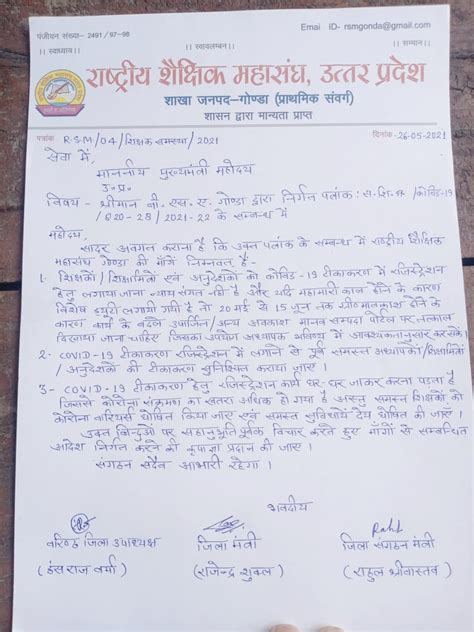 पंजीयन संख्या- 2491/97-98
Emai ID- rsmgonda@gmail.com
।। स्वाध्याय।। ।। स्वावलम्बन।। ।। सम्मान।।
राष्ट्रीय शैक्षिक महासंघ, उत्तर प्रदेश
शाखा जनपद-गोण्डा (प्राथमिक संवर्ग)
शासन द्वारा मान्यता प्राप्त
पत्रांक R.S.M/04/शिक्षक समस्या/2021 दिनांक-26-05-2021
सेवा में,
माननीय मुख्यमंत्री महोदय
उ.प्र.
विषय - श्रीमान बी. एस. ए. गोण्डा द्वारा निर्गत पत्रांक: /कोविड-19
/820-28/2021-22 के सम्बन्ध में
महोदय,
सादर अवगत कराना है कि उक्त पत्रांक के सम्बन्ध में राष्ट्रीय शैक्षिक
महासंघ गोण्डा की माँगें निम्नवत् है:-
1. शिक्षकों/शिक्षामित्रों एवं अनुदेशकों को कोविड-19 टीकाकरण में रजिस्ट्रेशन
हेतु लगाया जाना न्याय संगत नहीं है और यदि महामारी काल होने के कारण
विशेष ड्यूटी लगायी गयी है तो 20 मई से 15 जून तक ग्रीष्मावकाश होने के
कारण कार्य के बदले उपार्जित/अन्य अवकाश मानव सम्पदा पोर्टल पर तत्काल
दिखाया जाना चाहिए जिसका उपयोग अध्यापक भविष्य में आवश्यकतानुसार कर सके।
2- COVID-19 टीकाकरण रजिस्ट्रेशन में लगाने से पूर्व समस्त अध्यापकों/शिक्षामित्रों
/अनुदेशकों की टीकाकरण सुनिश्चित कराया जाए।
3- COVID-19 टीकाकरण हेतु रजिस्ट्रेशन कार्य घर-घर जाकर करना पड़ता है
जिससे कोरोना संक्रमण का खतरा अधिक हो गया है अस्तु समस्त शिक्षकों को
कोरोना वारियर्स घोषित किया जाए एवं समस्त सुविधायें देय घोषित की जाए।
उक्त बिन्दुओं पर सहानुभूति पूर्वक विचार करते हुए माँगों से सम्बन्धित
आदेश निर्गत करने की कृपा प्रदान की जाए।
संगठन सदैव आभारी रहेगा।
भवदीय
वरिष्ठ जिला उपाध्यक्ष जिला मंत्री जिला संगठन मंत्री
(हंसराज वर्मा) (राजेन्द्र शुक्ल) (राहुल श्रीवास्तव)